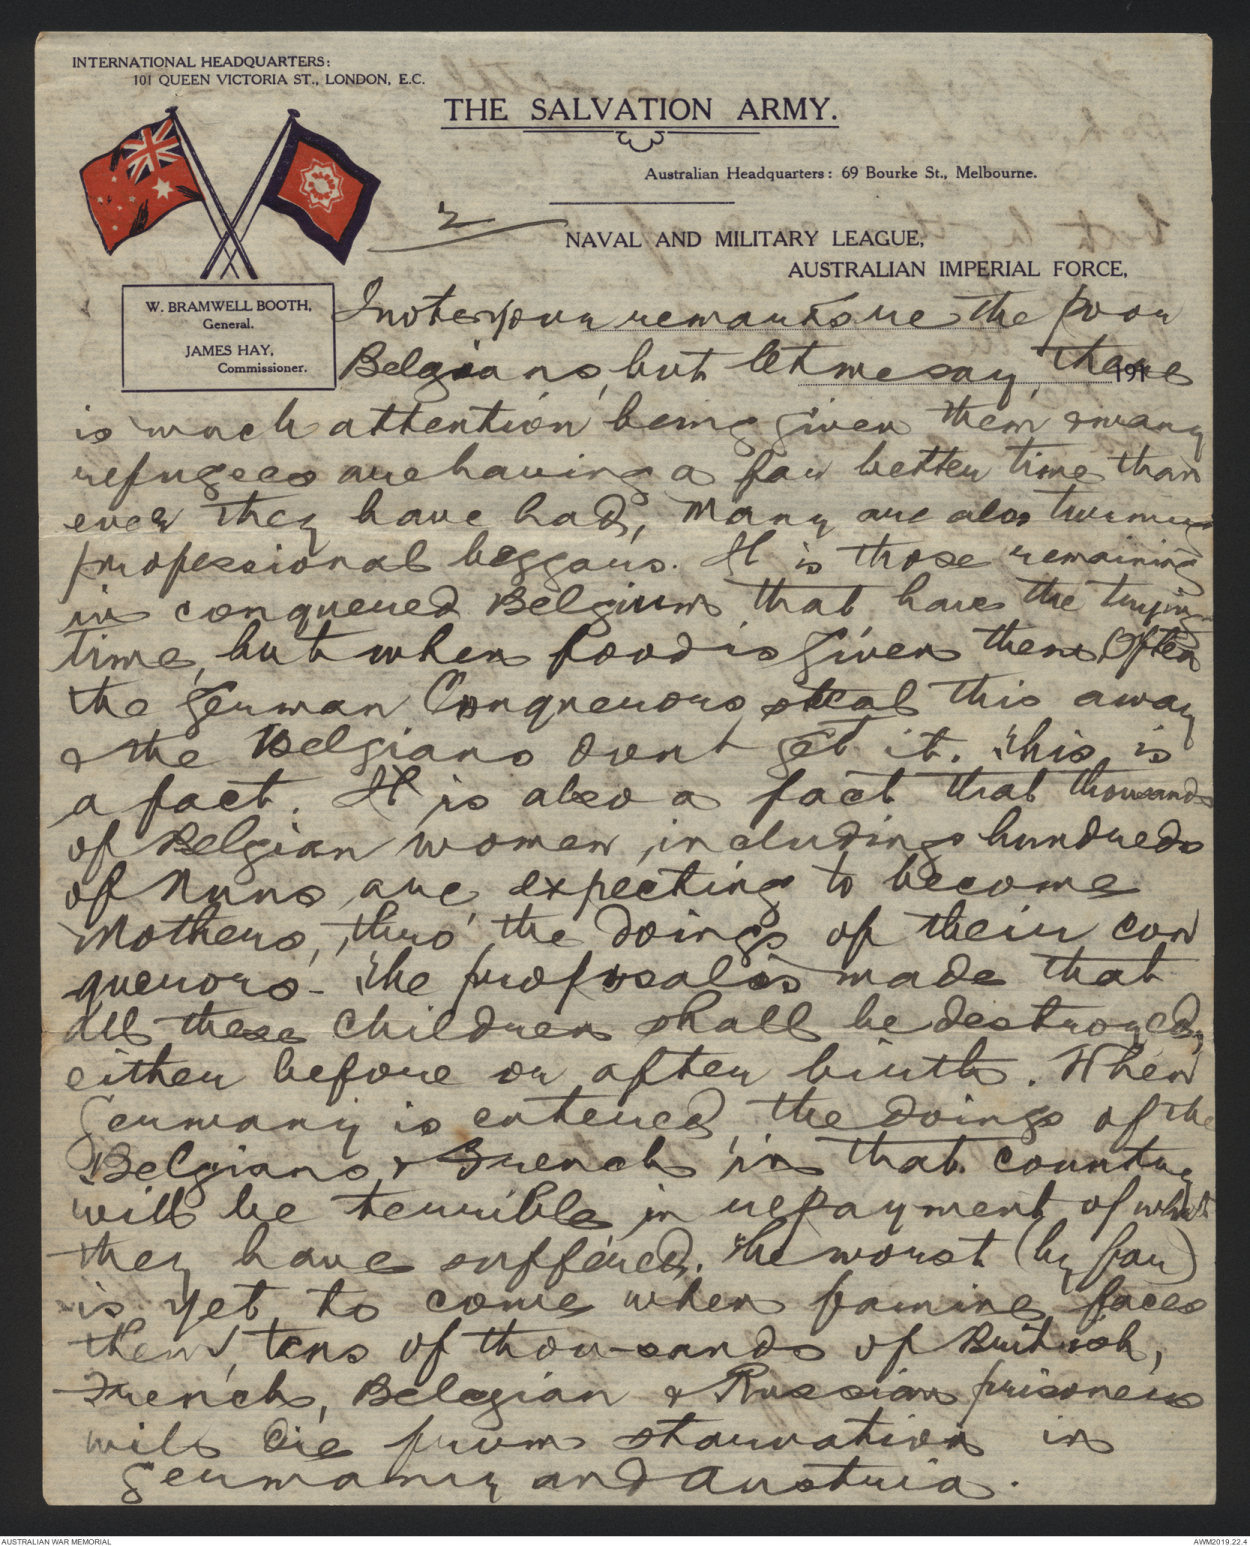 INTERNATIONAL HEADQUARTERS:
101 QUEEN VICTORIA ST., LONDON, E.C.
THE SALVATION ARMY.
Australian Headquarters: 69 Bourke St., Melbourne.
2
NAVAL AND MILITARY LEAGUE,
AUSTRALIAN IMPERIAL FORCE,
W. BRAMWELL BOOTH,
General.
JAMES HAY,
Commissioner.
191
I note your remarks re the poor
Belgians, but let me say, there
is much attention being given them & many
refugees are having a far better time than
ever they have had, many are also turning
professional beggars. It is those remaining
in conquered Belgium that have the trying
time, but when food is given them, often
the German Conquerors steal this away
& the Belgians dont get it. This is
a fact. It is also a fact that thousands
of Belgian women, including hundreds
of Nuns, are expecting to become
Mothers, thro' the doings of their con
querors - The proposal is made that
all these children shall be destroyed,
either before or after birth. When
Germany is entered, the doings of the
Belgians & French in that country
will be terrible in repayment of what
they have suffered. The worst (by far)
is yet to come when famine faces
them, tens of thousands of British,
French, Belgian & Russian prisoners
will die from starvation in
Germany and Austria.
AUSTRALIAN WAR MEMORIAL
AWM2019.22.4